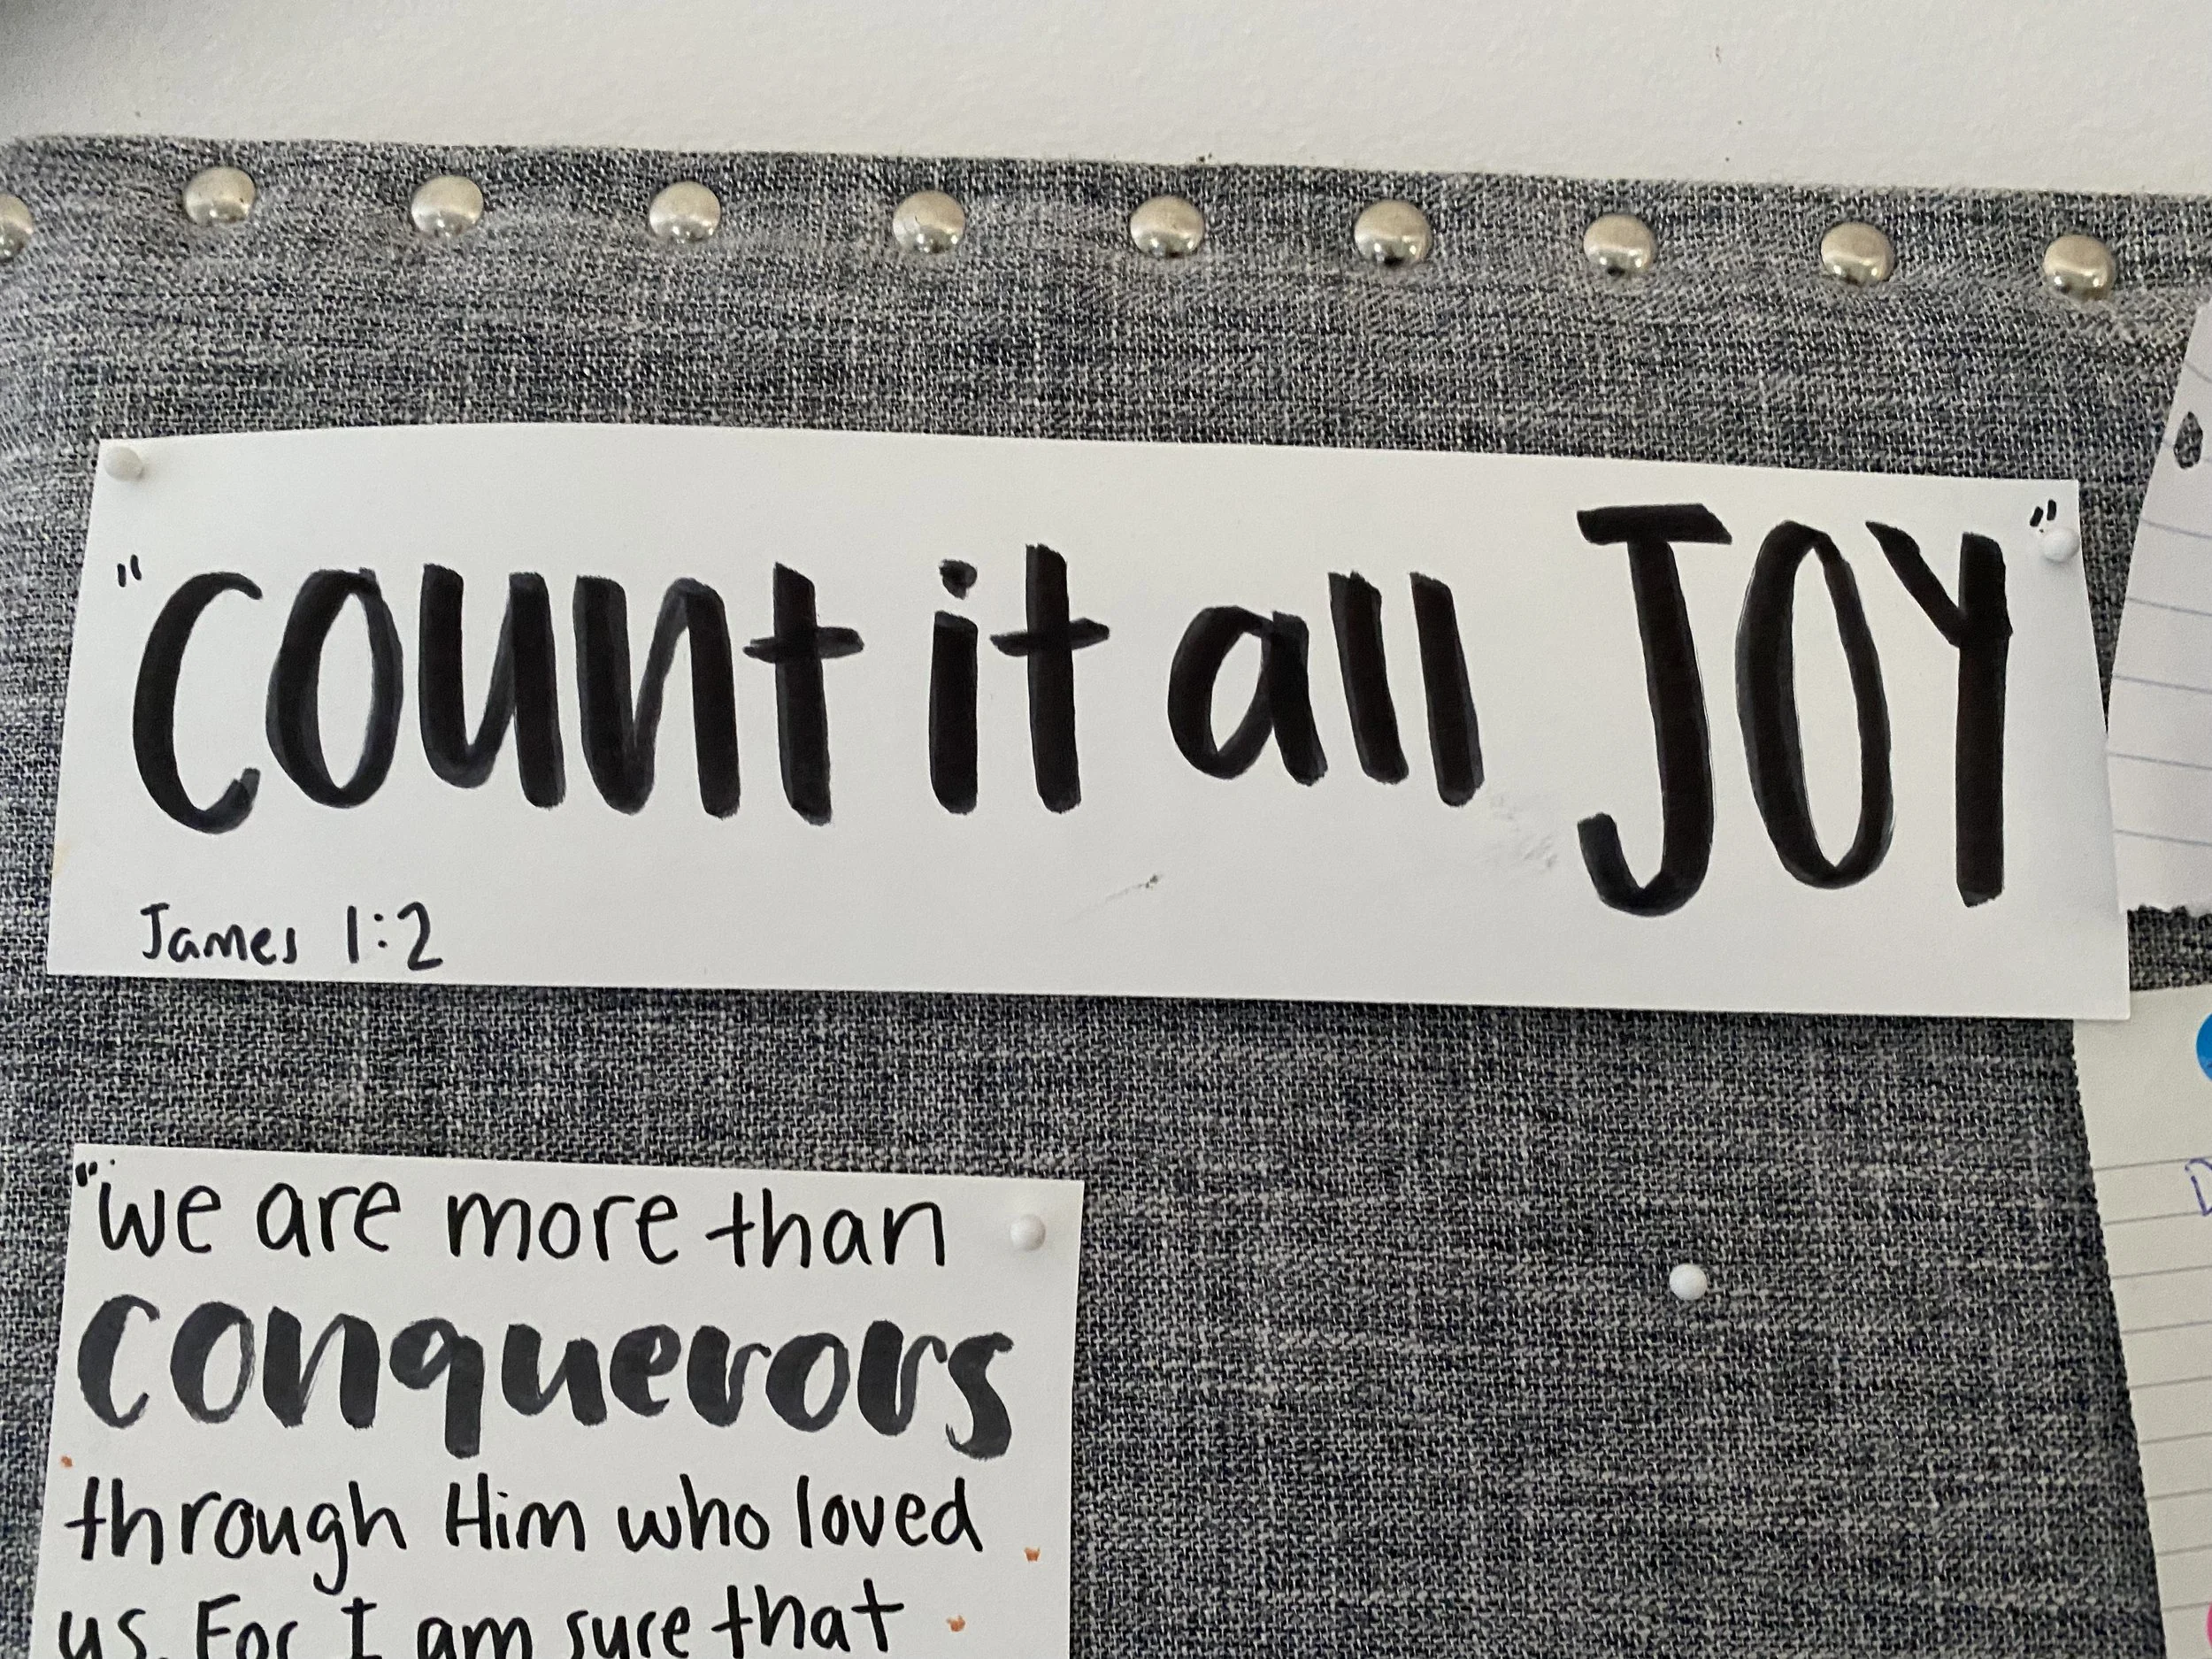 "count it all JOY"
James 1:2
"we are more than
conquerors
through Him who loved
us. For I am sure that